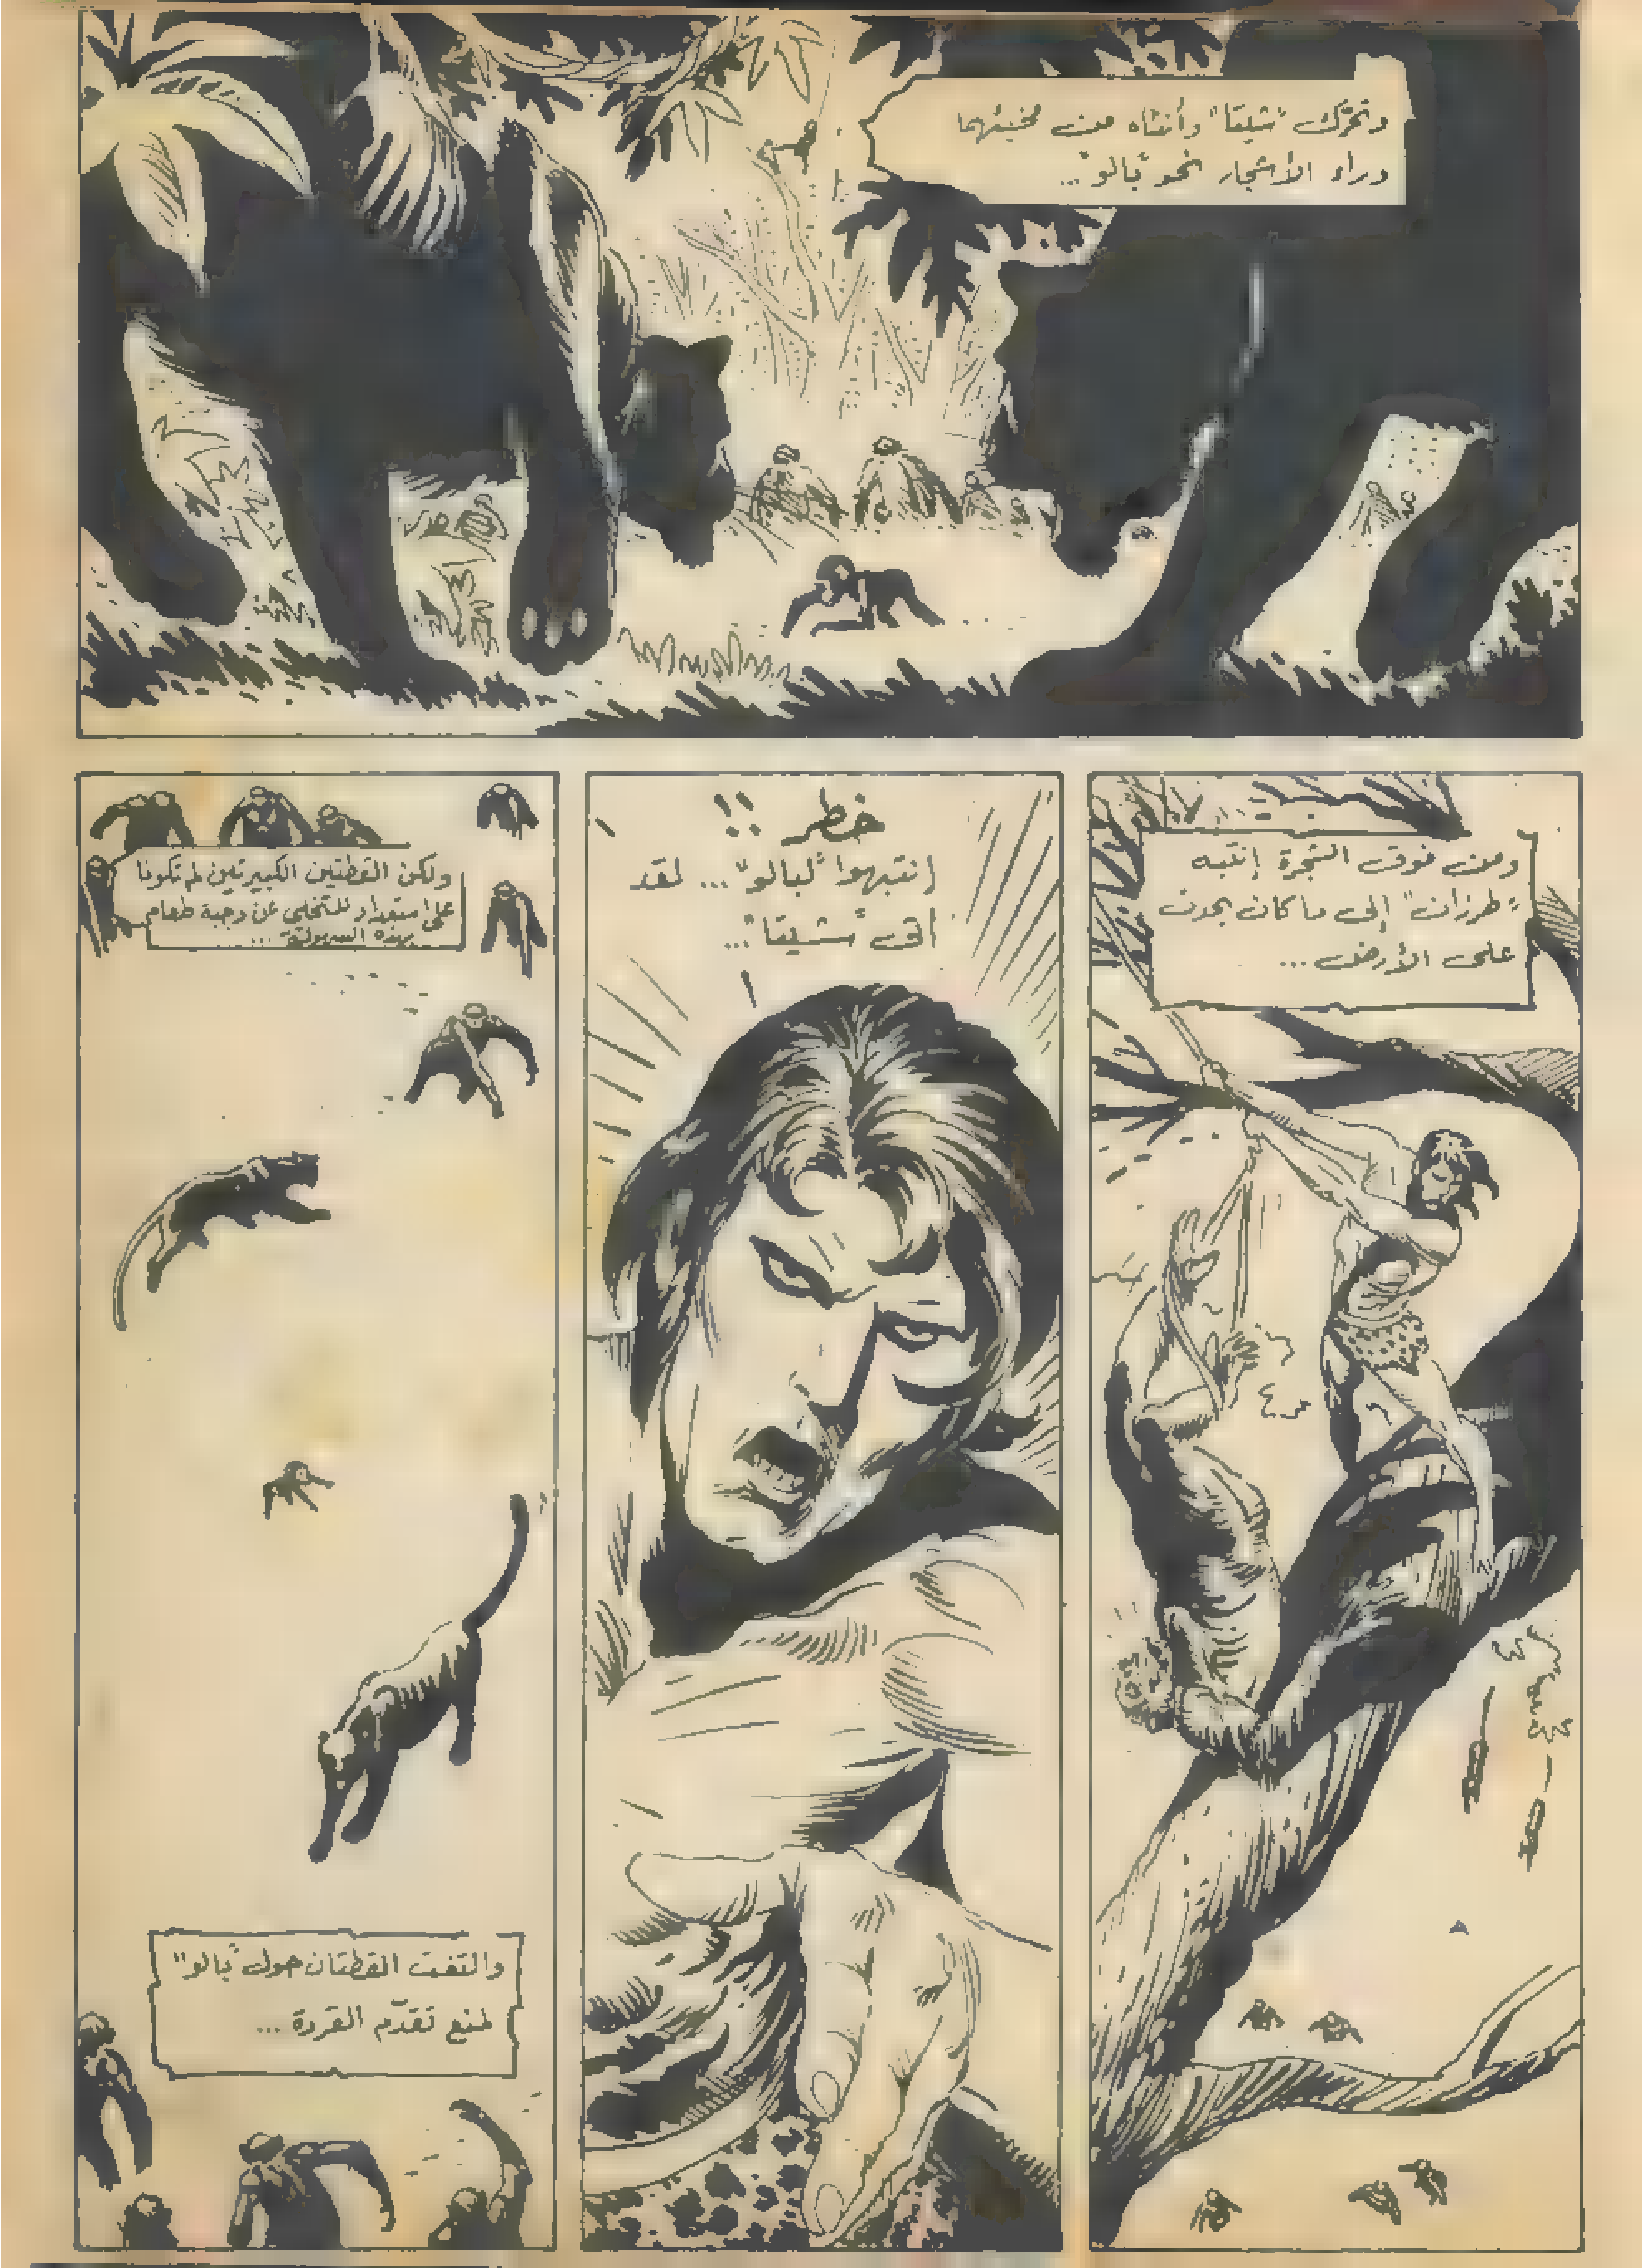 وتحرّك "شيتا" وأنثاه من مخبئهما
وراء الأشجار نحو "بالو"...
ومن فوق الشجرة إنتبه
"طرزان" إلى ما كان يحدث
على الأرض ...
خطر !!
انتبهوا "لبالو"... لقد
أتى "شيتا"...
ولكن القطتين الكبيرتين لم تكونا
على استعداد للتخلي عن وجبة طعام
بهذه السهولة ...
والتفت القطتان حول "بالو"
لمنع تقدّم القردة ...
٨